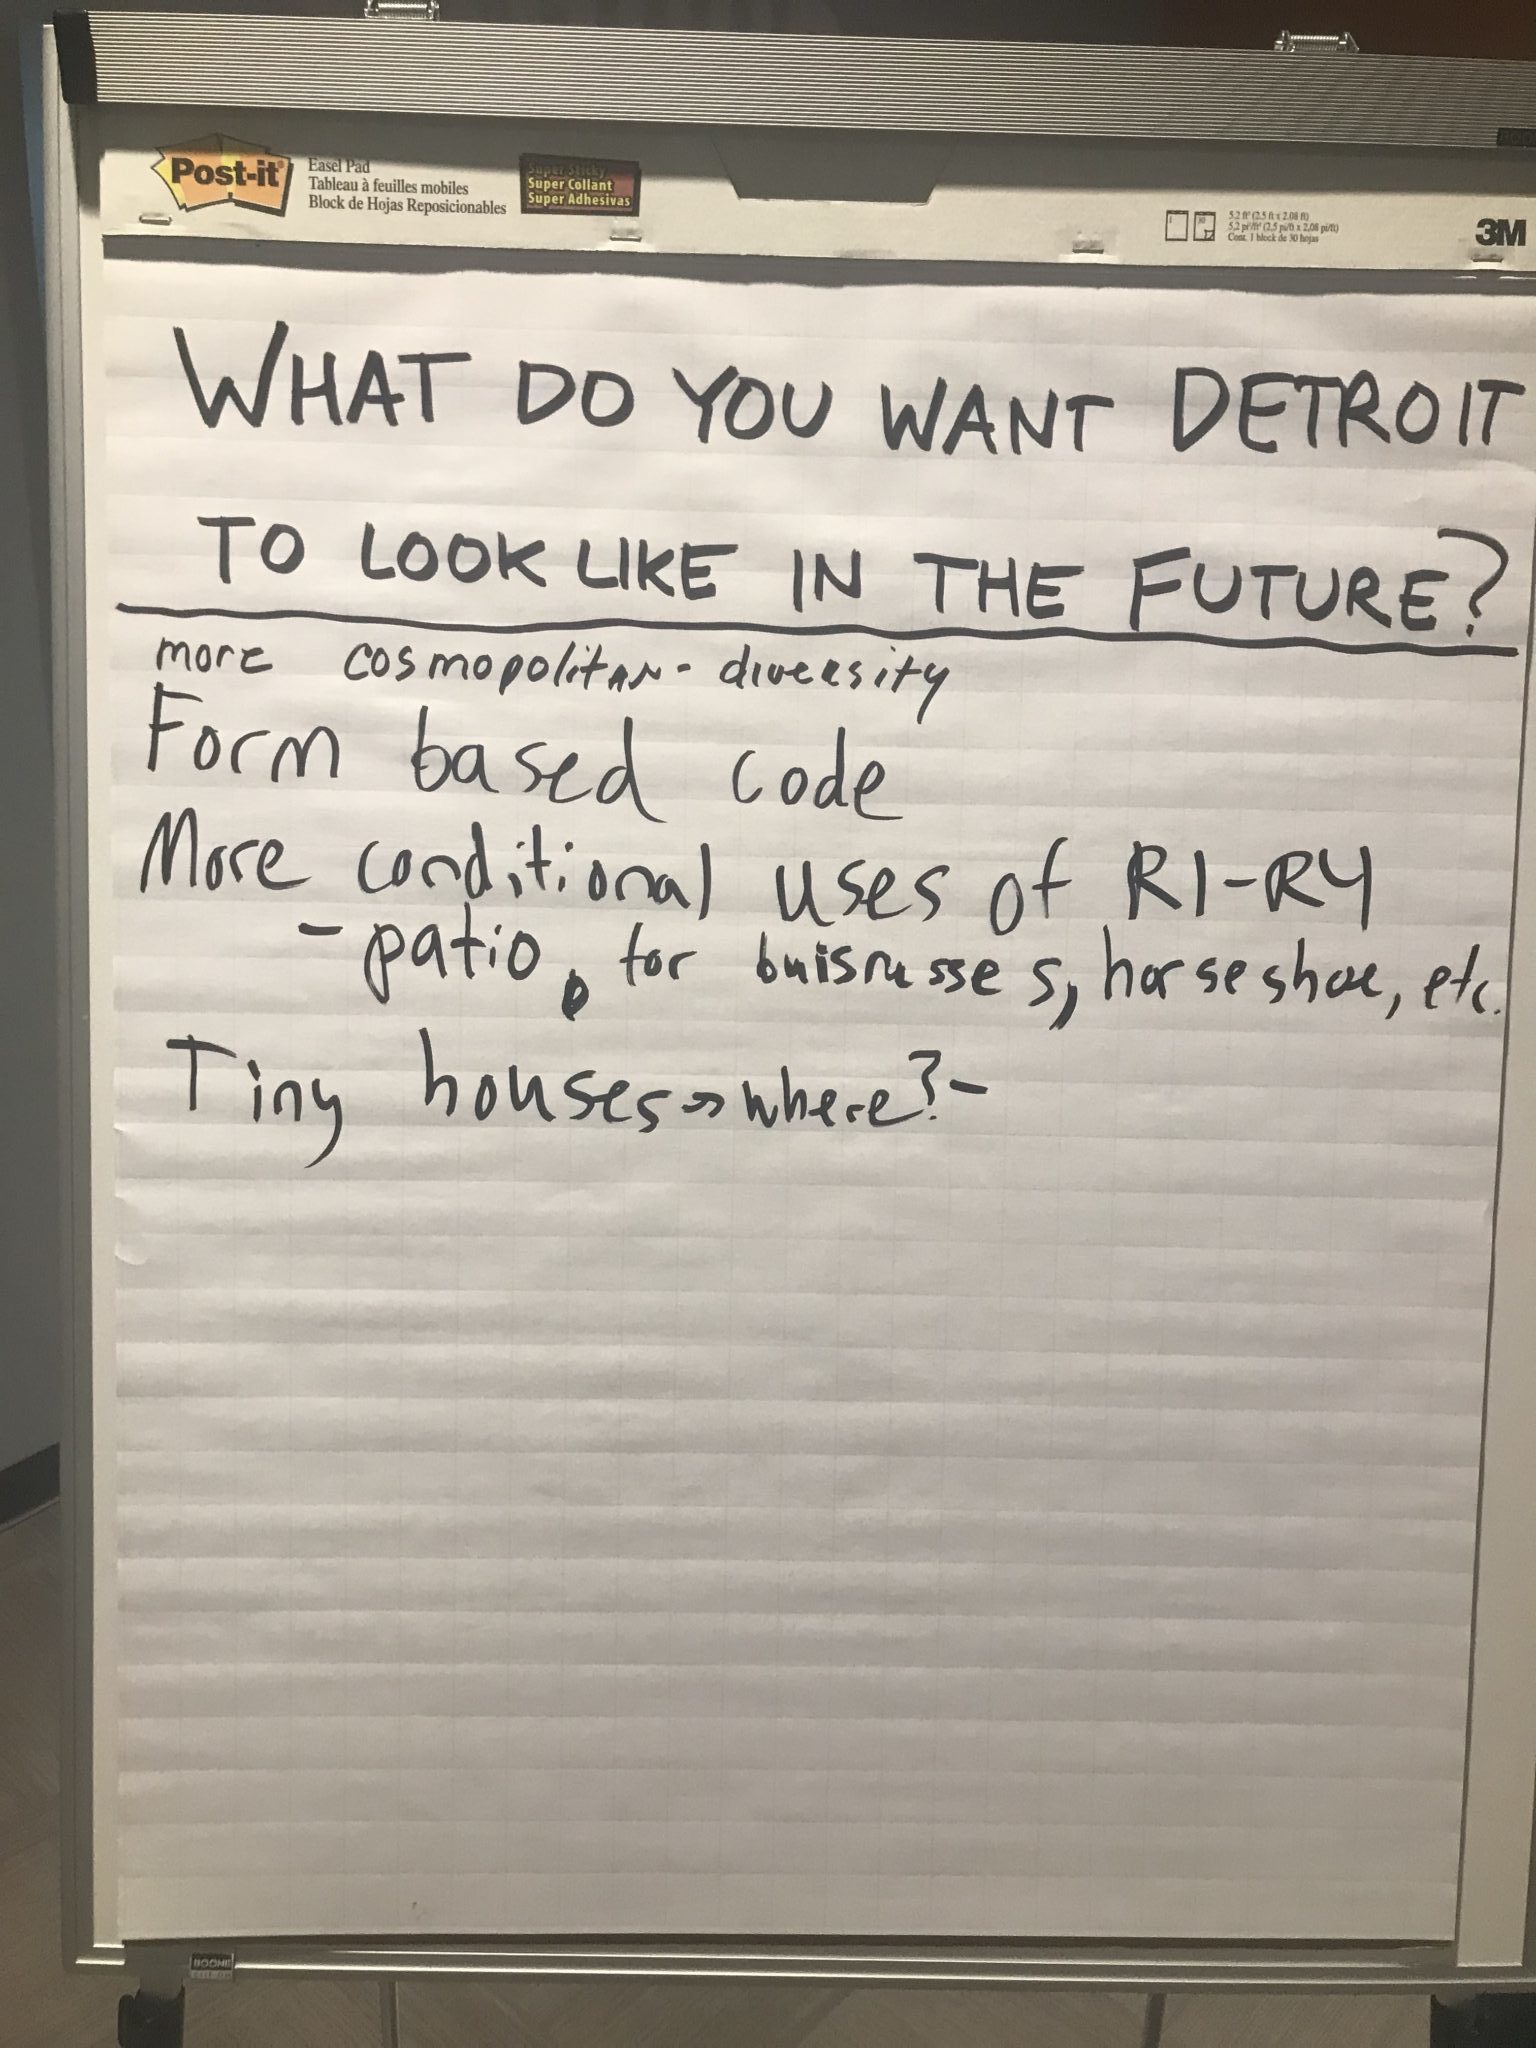 Post-it
Easel Pad
Tableau à feuilles mobiles
Block de Hojas Reposicionables
Super Sticky
Super Collant
Super Adhesivas
5.2 ft² (2.5 ft x 2.08 ft)
5,2 pi/ft² (2,5 pi/ft x 2,08 pi/ft)
Cont. 1 block de 30 hojas
3M
WHAT DO YOU WANT DETROIT
TO LOOK LIKE IN THE FUTURE?
more cosmopolitan - diversity
Form based code
More conditional uses of R1-R4
- patio, for buisnusses, horseshoe, etc.
Tiny houses → where? -